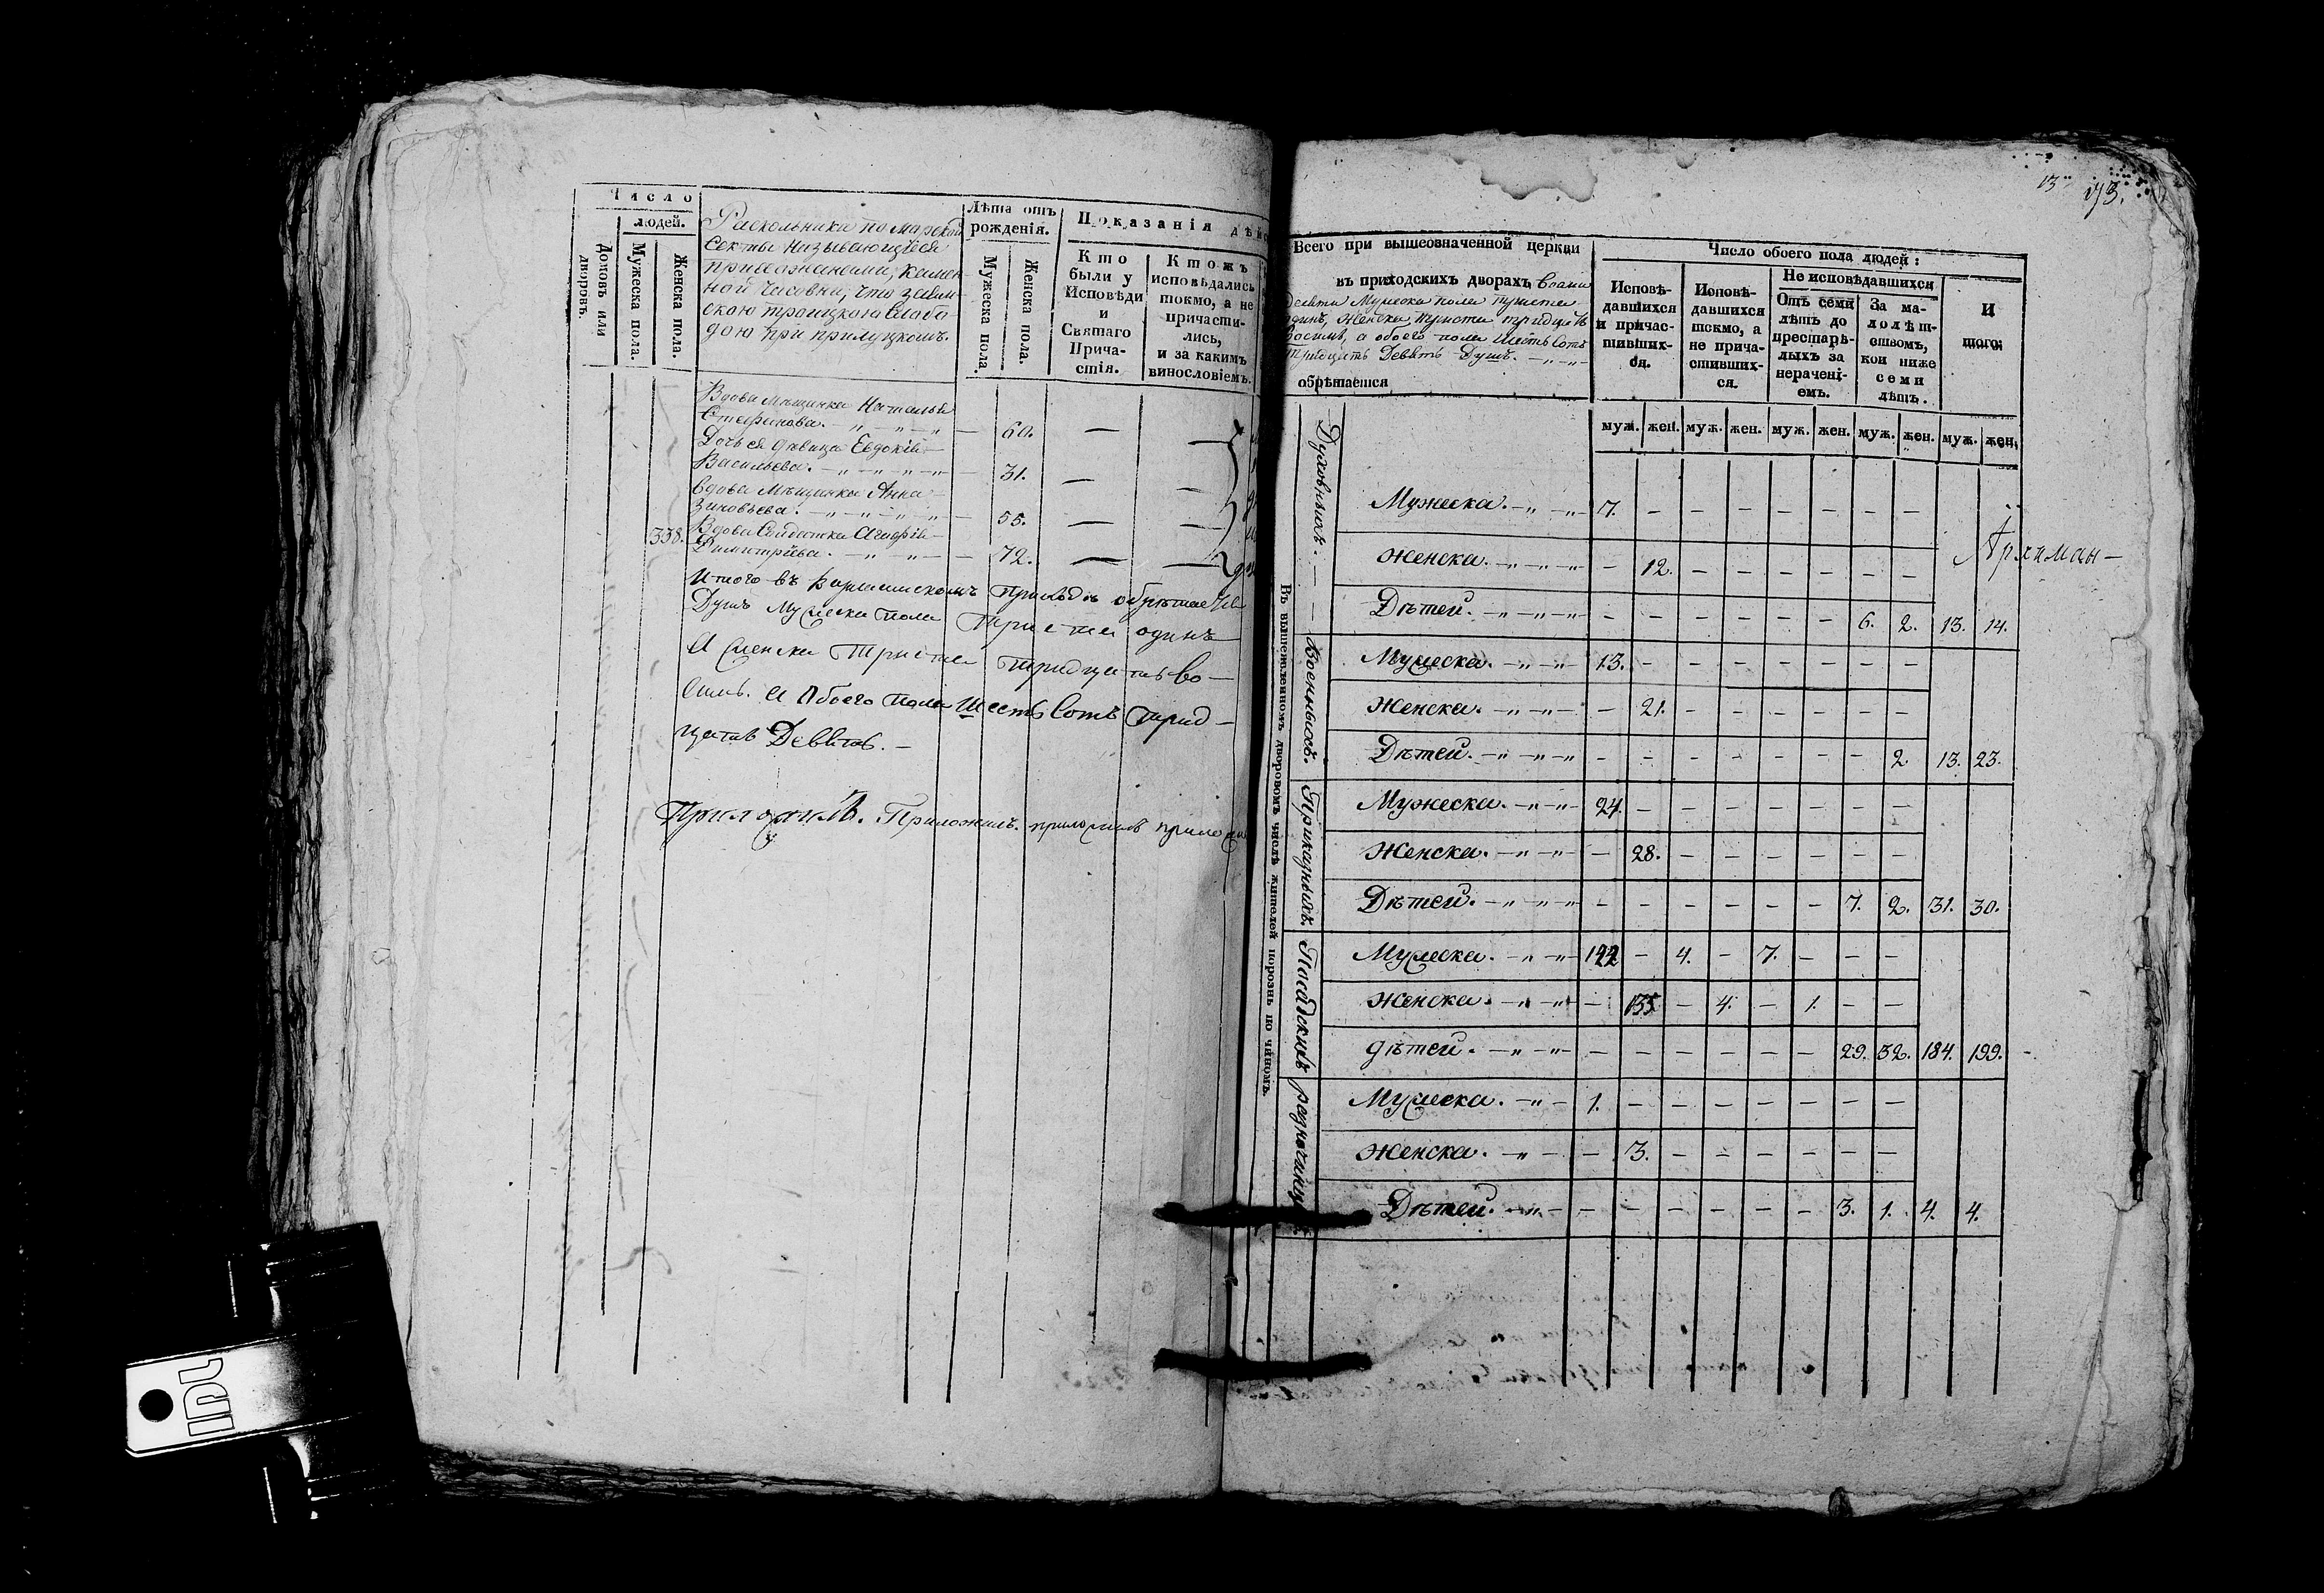 Число
людей.
Домовъ или дворовъ.
Мужеска пола.
Женска пола.
Раскольники поморской
секты называющіеся
прихожанами, камен-
ной часовни, что за
скою троицкою слабо-
дою при прилуцкомъ.
Лѣта отъ
рожденія.
Мужеска пола.
Женска пола.
Показанія
Кто
были у
Исповѣди
и
Святаго
Прича-
стія.
Ктожъ
исповѣдались
токмо, а не
причасти-
лись,
и за какимъ
винословіемъ.
Вдова мѣщанка Наталья
Стефанова. — 60. — —
Дочь ея дѣвица Евдокія
Васильева. — 31. — —
Вдова мѣщанка Анна
Зиновьева. — 55. — —
338. Вдова солдатка Агафія
Димитріева. — 72. — —
Итого въ приходѣ обрѣтае
Душъ Мужеска пола Триста одинъ
А женска Триста тридцать во-
симъ. А Обоего пола Шесть Сотъ трид-
цать Девять. —
Приложилъ. Приложилъ. приложилъ
13 173.
Всего при вышеозначенной церкви
въ приходскихъ дворахъ
Мужеска пола триста
одинъ, женска триста тридцать
восимъ, а обоего пола шесть сотъ
тридцать Девять Душъ. —
обрѣтается
Число обоего пола людей:
Исповѣ-
давшихся
и причас-
тившихъ-
ся.
Исповѣ-
давшихся
токмо, а
не прича-
стивших-
ся.
Не исповѣдавшихся
Отъ семи
лѣтъ до
престарѣ-
лыхъ за
нерачені-
емъ.
За ма-
лолѣт-
ствомъ,
кои ниже
семи
лѣтъ.
И
того:
муж. жен. муж. жен. муж. жен. муж. жен. муж. жен.
Въ вышеписенномъ дворовомъ числѣ жителей порознь по чиномъ.
Духовныхъ.
Мужеска. 7. — — — — — — —
Женска. — 12. — — — — — —
Дѣтей. — — — — — — 6. 2. 13. 14.
Архиман-
Военныхъ.
Мужеска. 13. — — — — — — —
Женска. — 21. — — — — — —
Дѣтей. — — — — — — — 2. 13. 23.
Приказныхъ.
Мужеска. 24. — — — — — — —
Женска. — 28. — — — — — —
Дѣтей. — — — — — — 7. 2. 31. 30.
Посадскихъ
Мужеска. — 4. — 7. — — —
Женска. — 135 — 4. — 1. — —
дѣтей. — — — — — — 29. 184. 199.
разночинцовъ
Мужеска. 1. — — — — — — —
Женска. — 3. — — — — — —
Дѣтей. — — — — — — 3. 1. 4. 4.